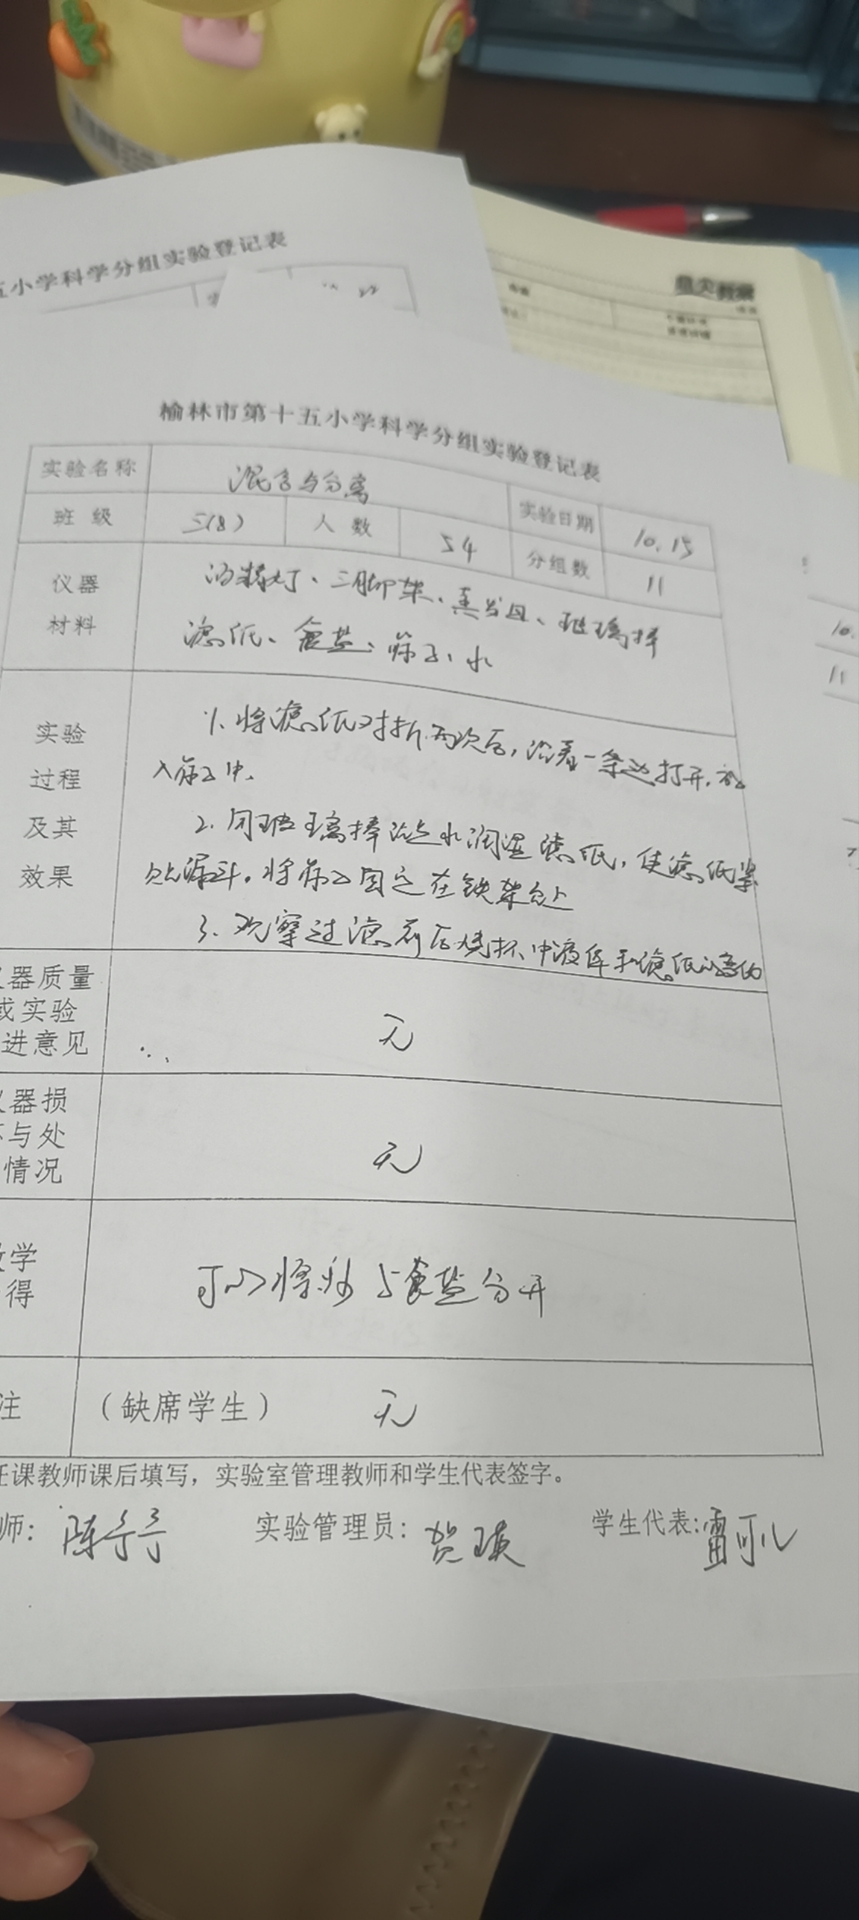 五小学科学分组实验登记表
榆林市第十五小学科学分组实验登记表
实验名称 混合与分离 实验日期 10.15
班级 三(8) 人数 54 分组数 11
仪器材料 酒精灯、三脚架、蒸发皿、玻璃棒
滤纸、食盐、筛子、水
实验过程及其效果 1、将滤纸对折两次后,沿着一条边打开,放
入筛子中.
2、用玻璃棒沾点水润湿滤纸,使滤纸紧
贴漏斗。将筛子固定在铁架台上
3、观察过滤前后烧杯中液体和滤纸上的
器质量
或实验
进意见 无
器损
与处
情况 无
学
得 可以将沙与食盐分开
注 (缺席学生) 无
任课教师课后填写,实验室管理教师和学生代表签字。
师: 陈 实验管理员: 贺瑛 学生代表: 雷可儿